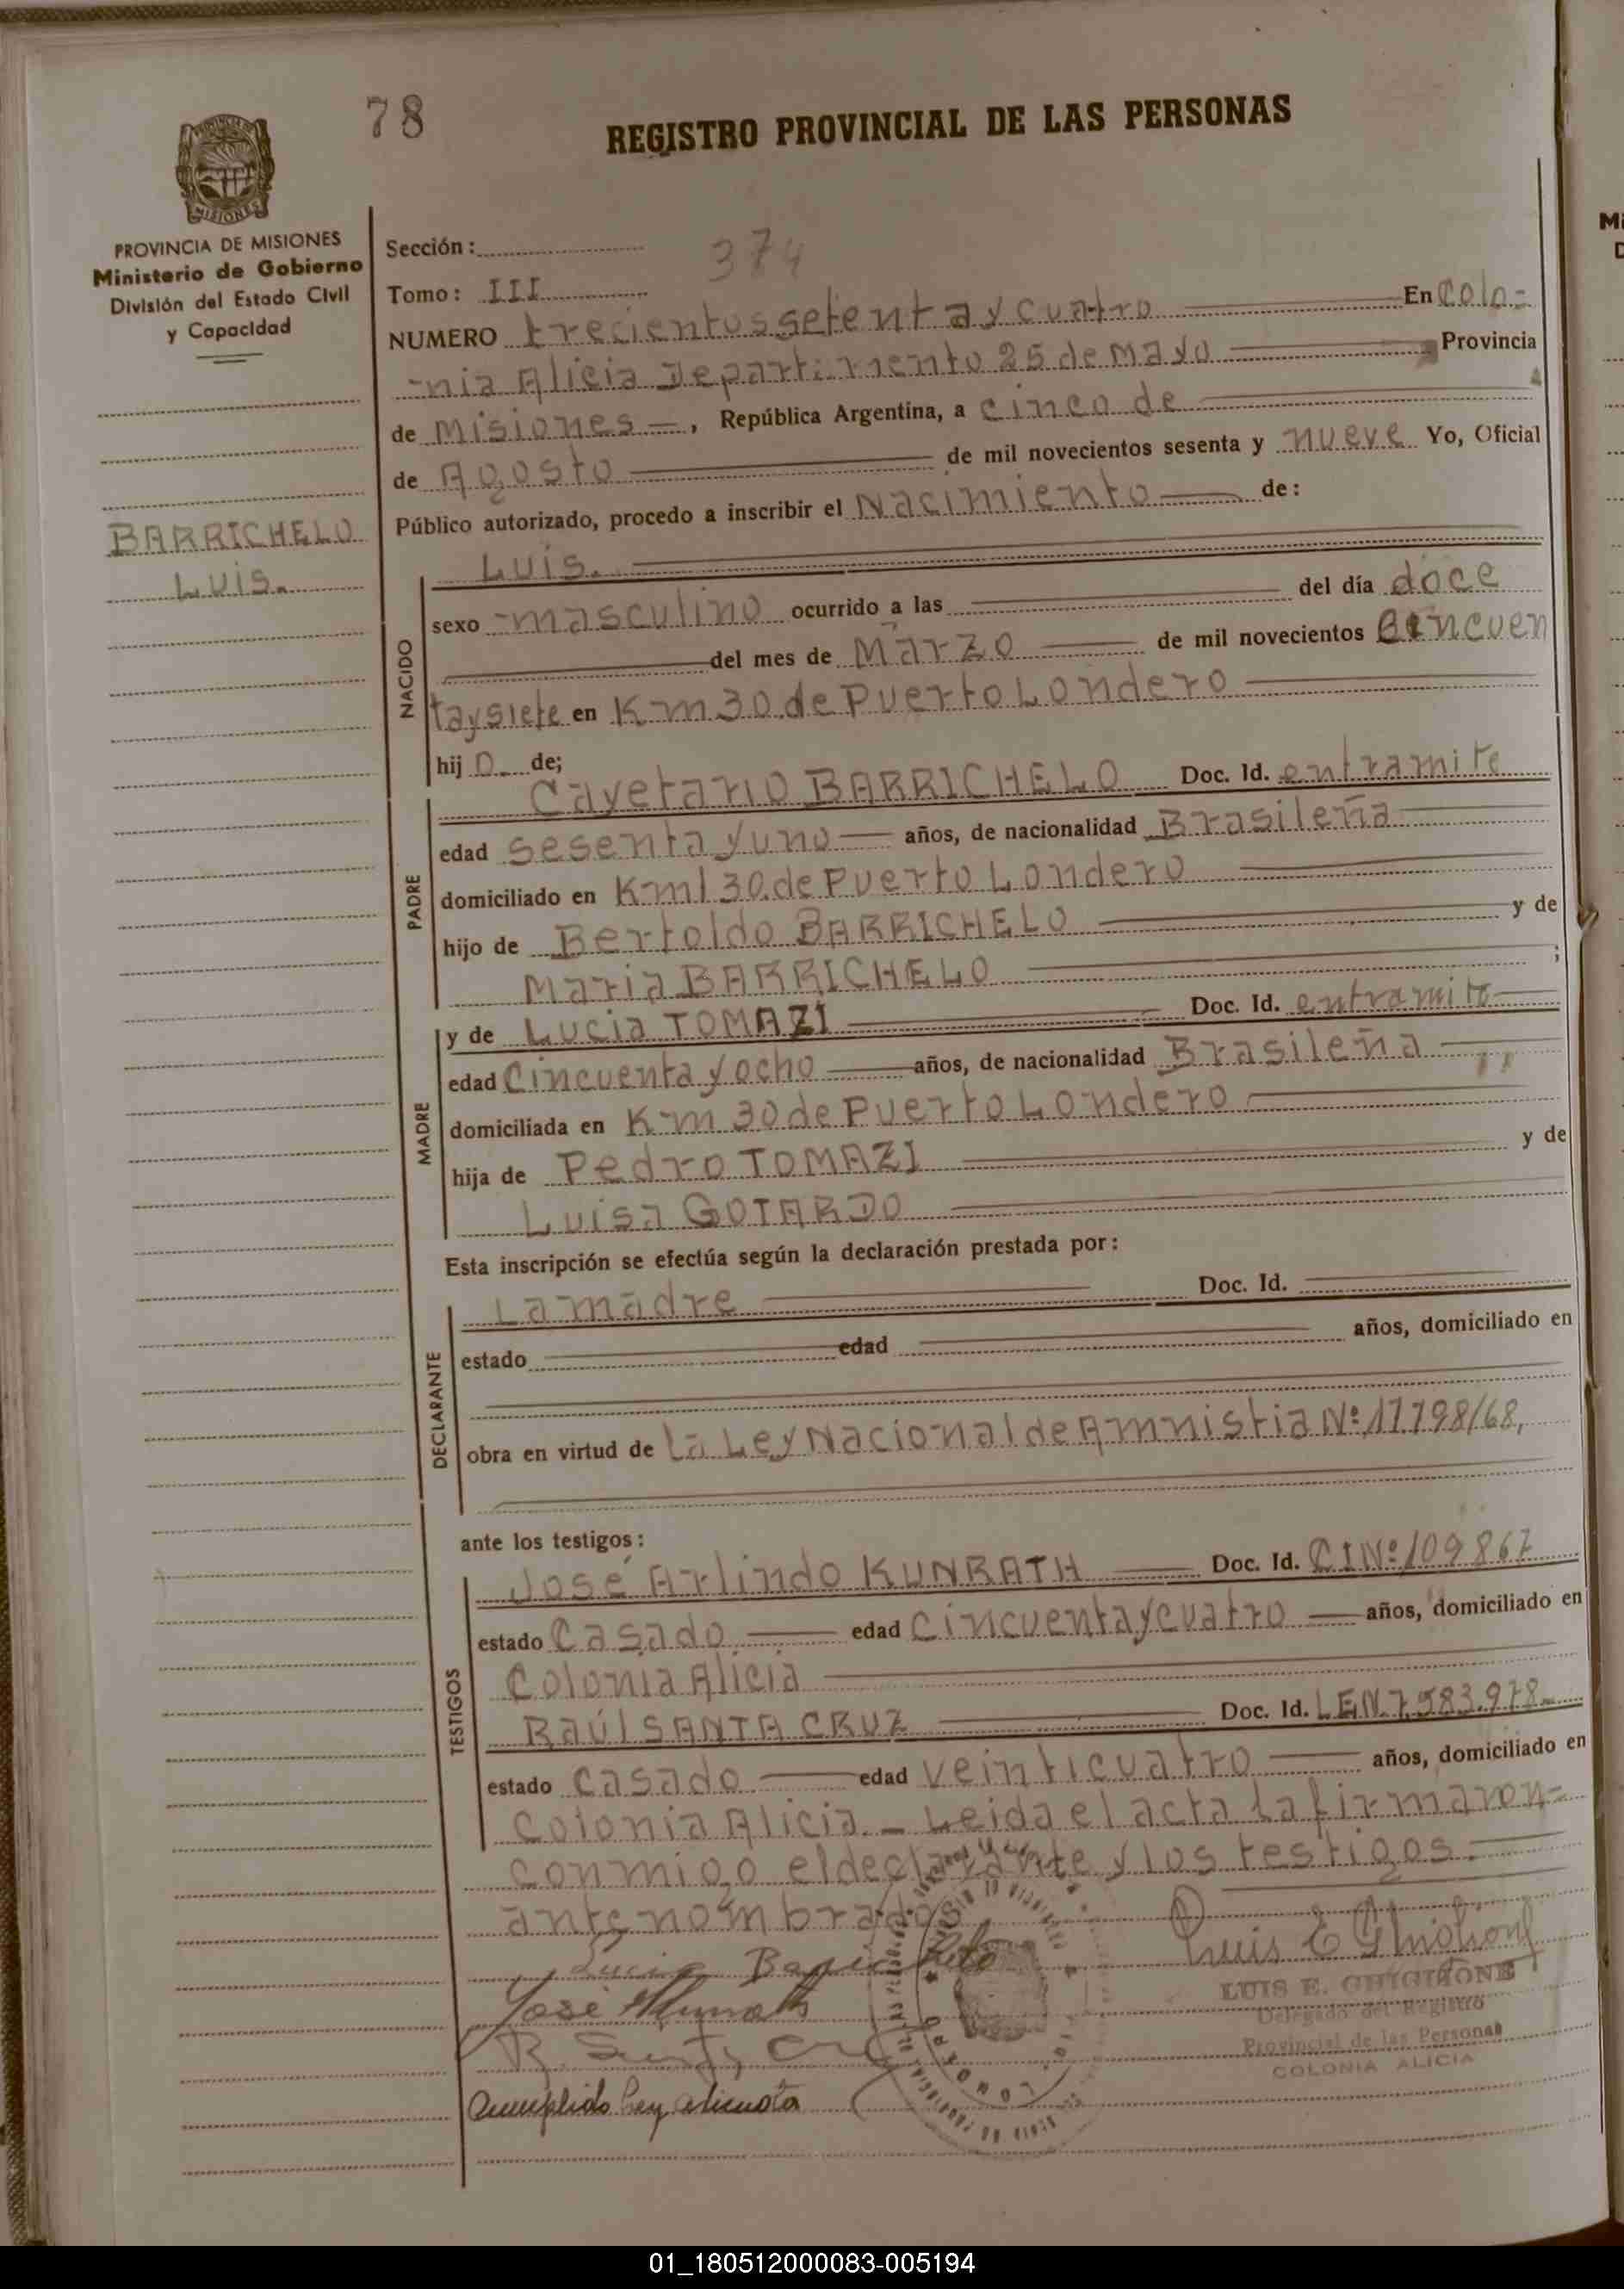 78
REGISTRO PROVINCIAL DE LAS PERSONAS
PROVINCIA DE MISIONES
Ministerio de Gobierno
División del Estado Civil
y Capacidad
BARRICHELO
Luis.
Sección:
374
Tomo: III
NUMERO trecientos setenta y cuatro En Colo=
-nia Alicia Departamento 25 de Mayo Provincia
de Misiones , República Argentina, a cinco de
de Agosto de mil novecientos sesenta y nueve Yo, Oficial
Público autorizado, procedo a inscribir el Nacimiento de:
NACIDO
Luis.
sexo -masculino ocurrido a las del día doce
del mes de Marzo de mil novecientos cincuen
tay siete en Km 30. de Puerto Londero
hij o de;
PADRE
Cayetano BARRICHELO Doc. Id. en tramite
edad sesenta y uno años, de nacionalidad Brasileña
domiciliado en Kml 30. de Puerto Londero
hijo de Bertoldo BARRICHELO y de
Maria BARRICHELO ;
MADRE
y de Lucia TOMAZI Doc. Id. en tramite
edad Cincuenta y ocho años, de nacionalidad Brasileña
domiciliada en Km 30 de Puerto Londero
hija de Pedro TOMAZI y de
Luisa GOTARDO
Esta inscripción se efectúa según la declaración prestada por:
DECLARANTE
La madre Doc. Id.
estado edad años, domiciliado en
obra en virtud de la Ley Nacional de Amnistia Nº 17.798/68,
ante los testigos:
TESTIGOS
José Arlindo KUNRATH Doc. Id. CI Nº 109867
estado Casado edad Cincuenta y cuatro años, domiciliado en
Colonia Alicia
Raúl SANTA CRUZ Doc. Id. LE N. 7.583.978
estado casado edad veinticuatro años, domiciliado en
Colonia Alicia.- Leida el acta la firmaron=
conmigo el declarante y los testigos.
antenombrados
Lucia Barrichelo
Luis E Ghighone
José Kunrath
LUIS E. GHIGHONE
Delegado del Registro
Provincial de las Personas
COLONIA ALICIA
R. Santa Cruz
Cumplido Ley alicuota
Mi
D
01_180512000083-005194